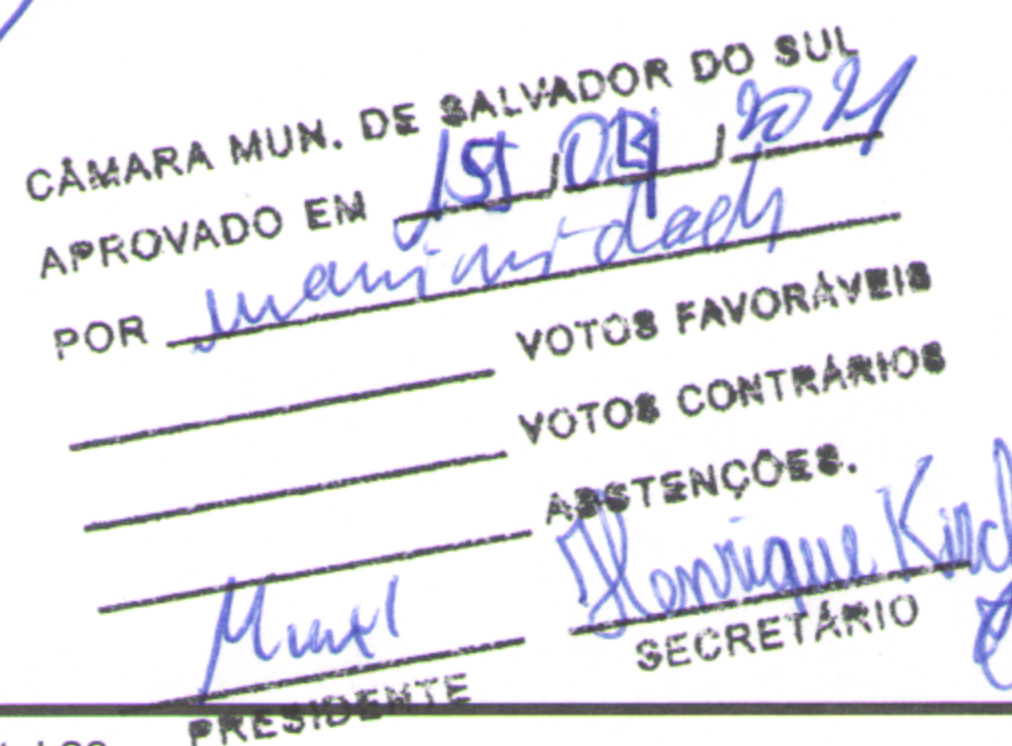 CÂMARA MUN. DE SALVADOR DO SUL
APROVADO EM 15/03/2021
POR unanimidade
VOTOS FAVORÁVEIS
VOTOS CONTRÁRIOS
ABSTENÇÕES.
Henrique
PRESIDENTE
SECRETÁRIO